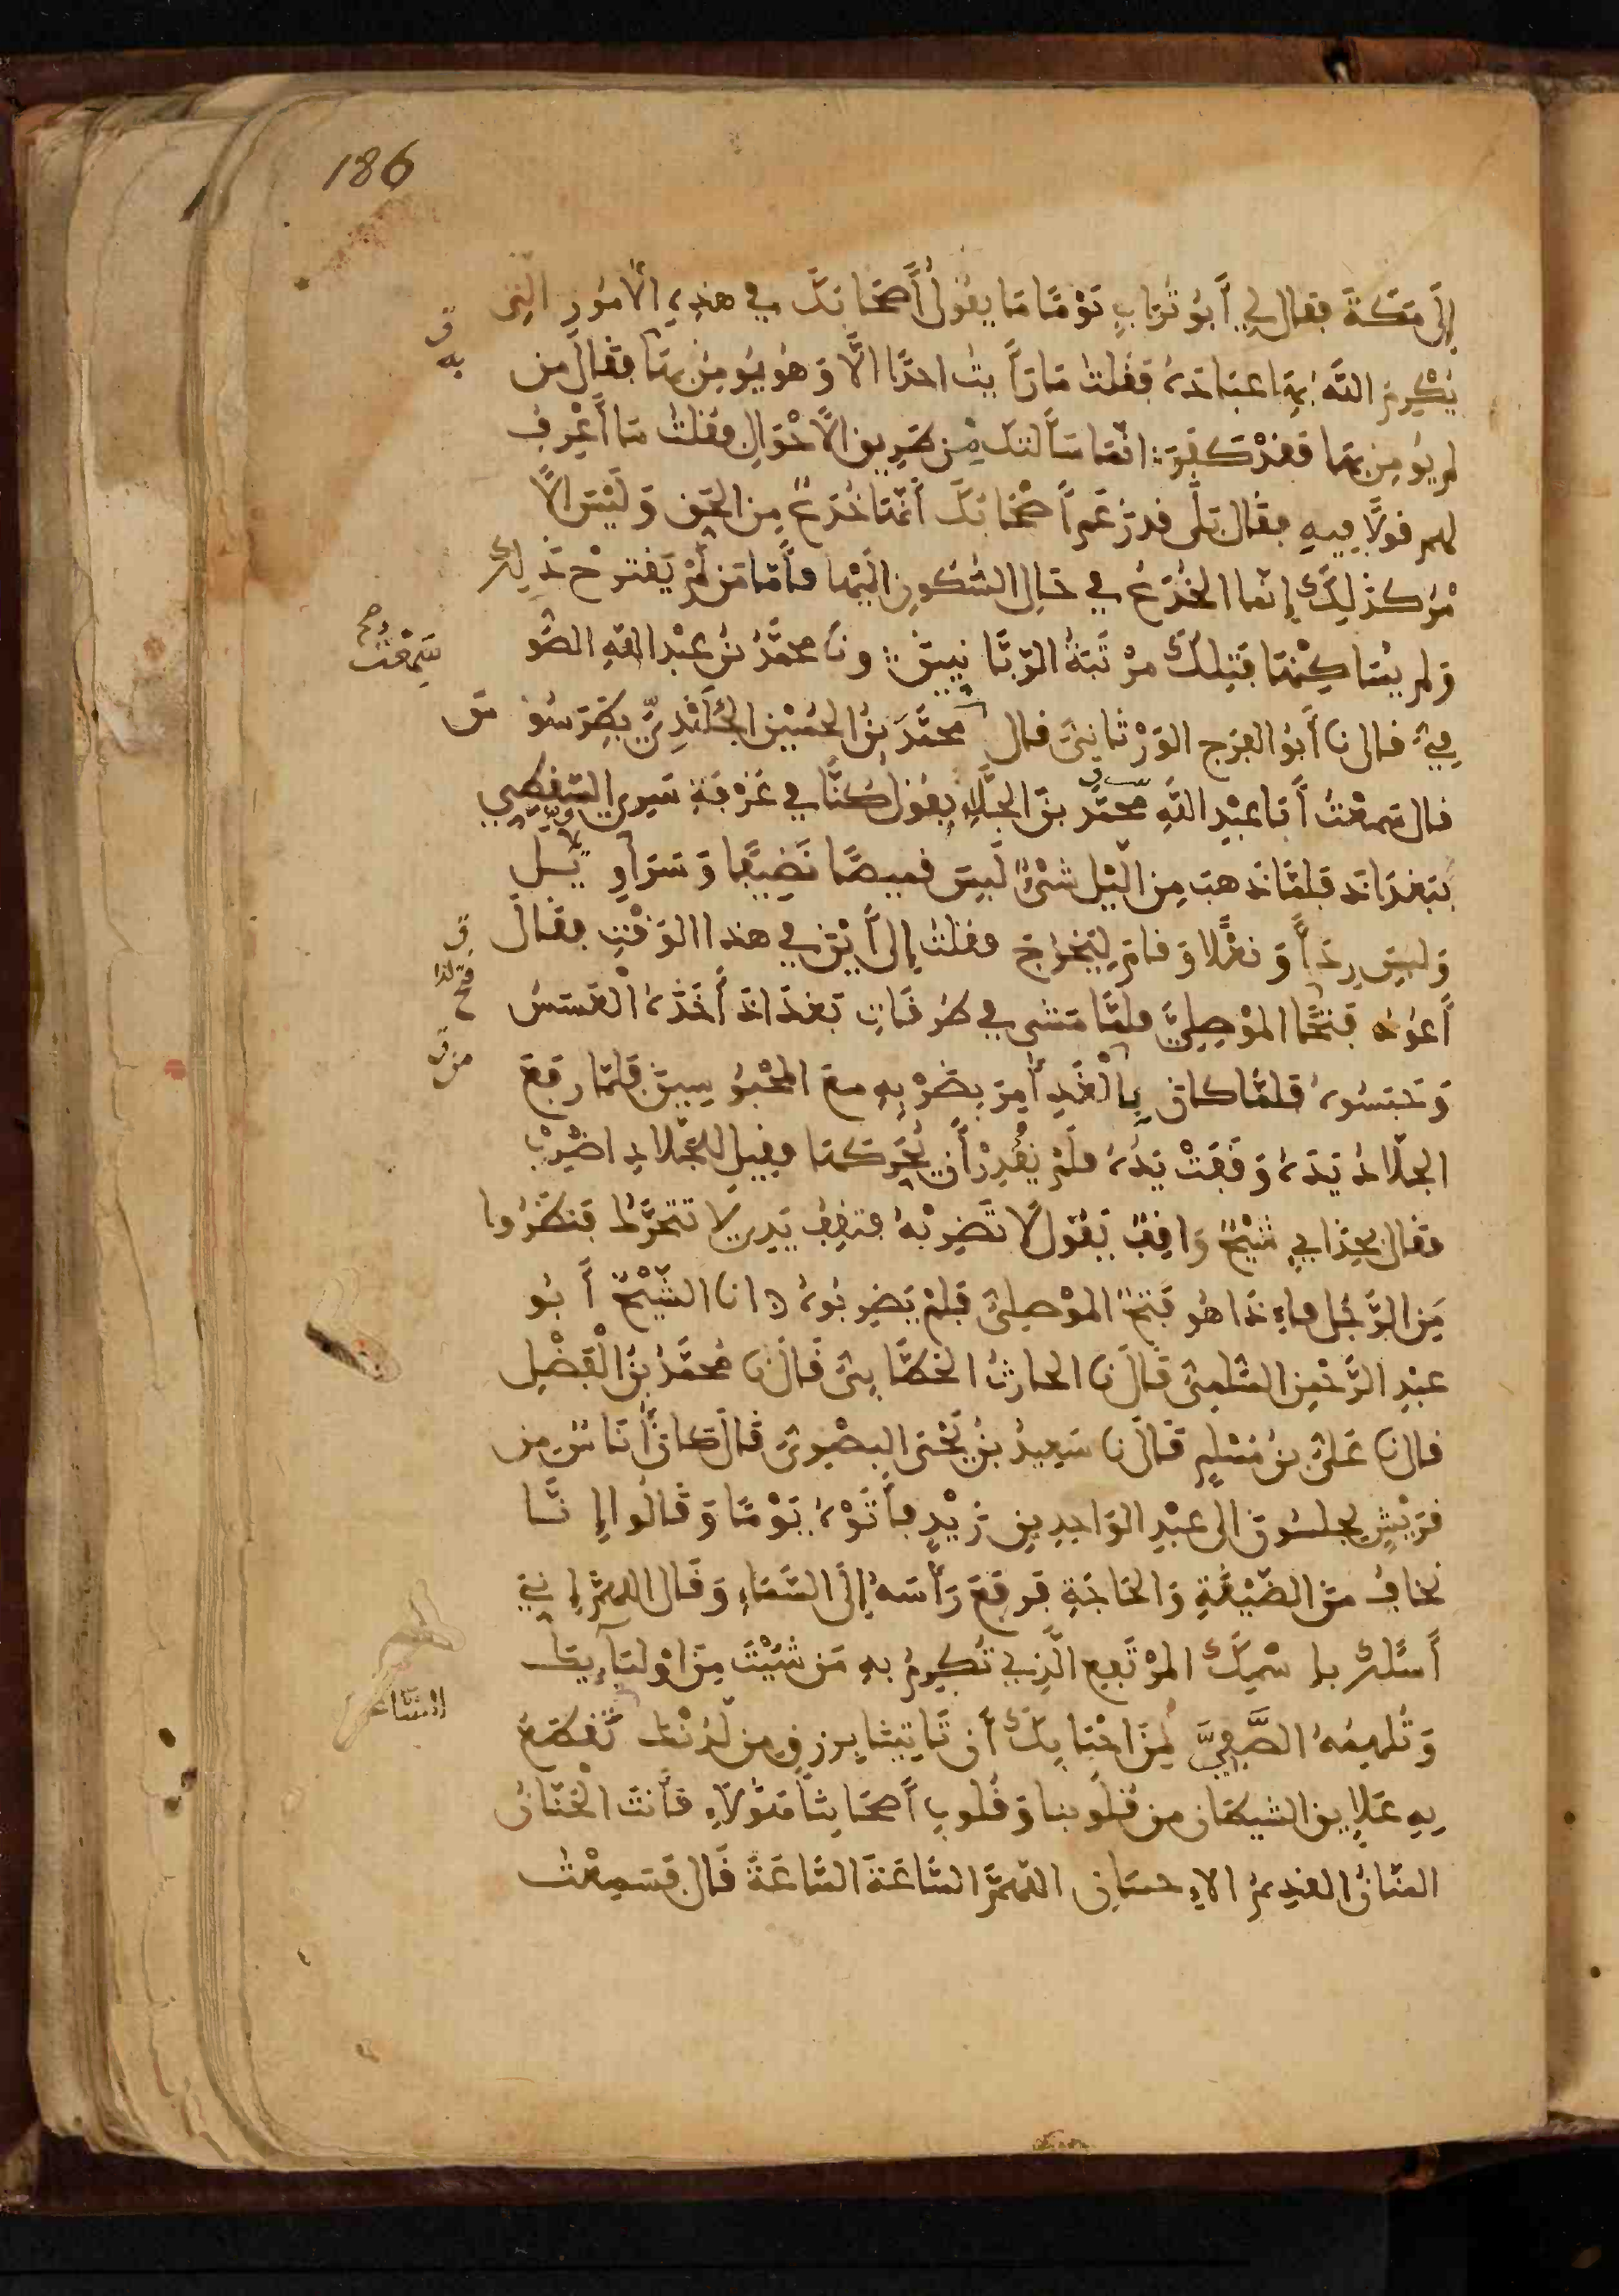 186
إِلَى مَكَّةَ فقال لي أَبُو تُرَابٍ يَوْمًا مَا يقُولُ أَصْحَابُكَ في هذِهِ الأمُورِ الَّتِي
يُكْرِمُ اللَّهُ بِهَا عِبَادَهُ فَقُلْتُ مَا رَأَيْتُ احدًا الَّا وَهُو يُومِنُ بِهَا فَقَالَ مَن
لم يُومِن بِهَا فَقَدْ كَفَرَ انَّما سَأَلْتُكَ مِن طَرِيقِ الأَحْوَالِ فقُلْتُ مَا أَعْرِفُ
لهم قولًا فِيهِ فقَال بَلَى قد زَعَمَ أَصْحَابُكَ أَنَّهَا خُدَعٌ مِنَ الحَقِّ وَلَيْسَ الأَ
مْرُ كذَلِكَ إِنَّما الخُدَعُ في حَالِ السُّكُونِ الَيْهَا فأَمَّا مَن لَمْ يَقْتَرِحْ ذَلِكَ
وَلم يُسَاكِنْهَا فَتِلْكَ مَرْتَبَةُ الرَّبَّانِيِّينَ ونا محَمَّدُ بْنُ عبْدِ اللَّهِ الصُّو
فِيُّ قال نا أَبُو الفرَج الوَرْثَانِيُّ قال محمَّدَ بْنَ الحُسَيْنِ الجُلَنْدِيَّ بِطَرَسُوسَ
سَمِعْتُ صح
قال سَمِعْتُ أَبَا عبْدِ اللَّهِ محمَّدَ بنَ الجَلَّاءِ يقُولُ كُنَّا في غُرْفَةِ سَرِيٍّ السَّقَطِيِّ
بِبَغْدَاذَ فَلمَّا ذهبَ مِنَ اللَّيْلِ شَيْءٌ لَبِسَ قميصًا نَظِيفًا وَسَرَاوِيلَ
وَلَبِسَ رِدَاءً وَنَعْلًا وَقامَ لِيَخْرُجَ فقُلْتُ إِلَى أَيْنَ في هذا الوَقْتِ فقَالَ
أَعُودُ فَتْحًا المَوْصِلِيَّ فلمَّا مَشَى في طُرُقَاتِ بَغْدَاذَ أَخَذَهُ الْعَسَسُ
وَحَبَسُوهُ فَلَمَّا كانَ بِالْغَدِ أُمِرَ بِضَرْبِهِ معَ المَحْبُوسِينَ فَلمَّا رفَعَ
الجلّادُ يَدَهُ وَقَفَتْ يَدُهُ فَلَمْ يَقْدِرْ أَن يُحَرِّكَهَا فقِيلَ لِلْجَلَّادِ اضْرِبْ
فقَال بِحِذَائِي شَيْخٌ وَاقِفٌ يَقُولُ لَا تَضْرِبْهُ فتَقِفُ يَدِي لَا تتَحَرَّكُ فَنَظَرُوا
مَنِ الرَّجُلُ فإِذَا هُو فَتْحٌ المَوْصِلِيُّ فَلَمْ يَضْرِبُوهُ انا الشَّيْخُ أَبُو
عبْدِ الرَّحْمنِ السُّلَمِيُّ قَالَ نا الحارثُ الخَطَّابِيُّ قَالَ نا مُحَمَّدُ بْنُ الْفَضْلِ
قال نا عَلِيُّ بنُ مُسْلِمٍ قَالَ نا سَعِيدُ بْنُ يَحْيَى البصْرِيُّ قَالَ كانَ أُنَاسٌ مِن
قُرَيْشٍ يجلسُونَ إلى عبْدِ الوَاحِدِ بنِ زَيْدٍ فأَتَوْهُ يَوْمًا وَقَالُوا إِنَّا
نخَافُ مِنَ الضَّيْقَةِ وَالحَاجَةِ فَرفَعَ رَأْسَهُ إِلَى السَّمَاءِ وَقَال اللهمَّ إِنِّي
أَسْأَلُكَ بِاسْمِكَ المُرْتَفِعِ الَّذِي تُكْرِمُ بِهِ مَن شِئْتَ مِنَ اوْلِيَائِكَ
وَتُلْهِمُهُ الصَّفِيَّ مِنَ احْبَابِكَ أَن تَأْتِيَنَا بِرِزْقٍ مِن لَدُنْكَ تَقْطَعُ
بِهِ عَلَايِقَ الشيطَانِ مِن قُلُوبِنَا وَقُلُوبِ أَصْحَابِنَا هَؤُلَاءِ فأَنْتَ الْحَنَّانُ
المَنَّانُ القَدِيمُ الإِحسَانِ اللَّهمَّ السَّاعَةَ السَّاعَةَ قَالَ فَسَمِعْتُ